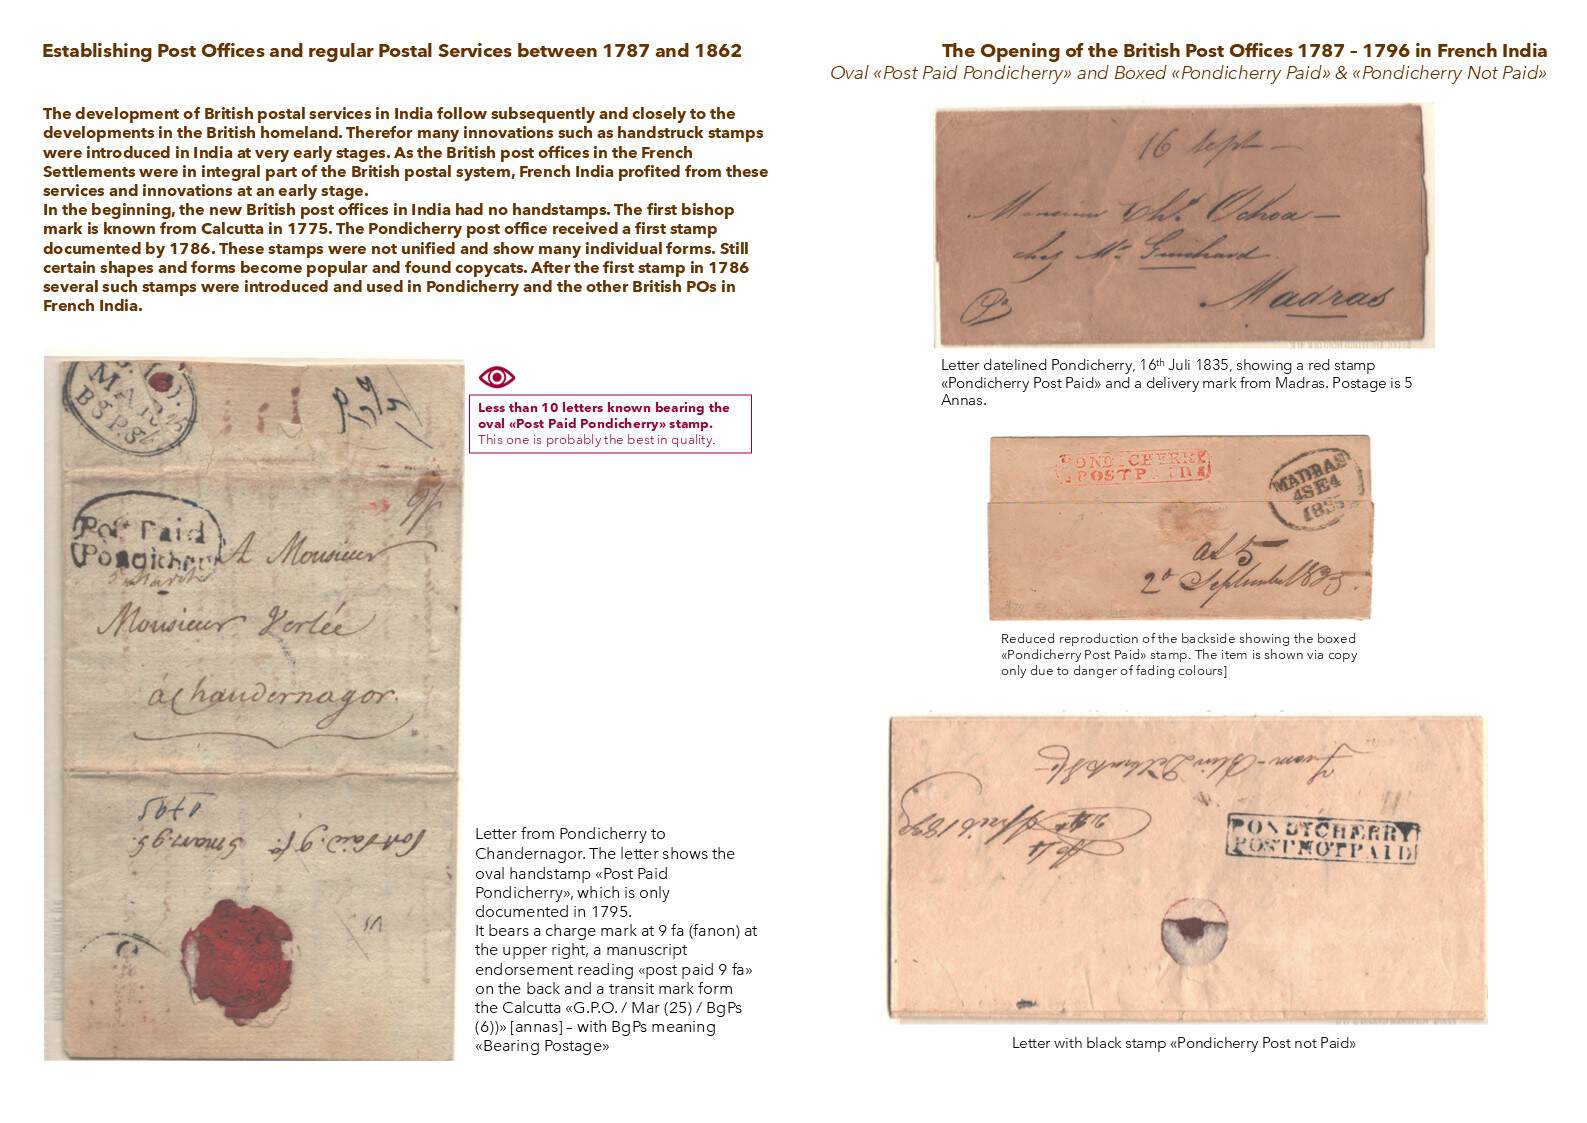 Establishing Post Offices and regular Postal Services between 1787 and 1862
The development of British postal services in India follow subsequently and closely to the
developments in the British homeland. Therefor many innovations such as handstruck stamps
were introduced in India at very early stages. As the British post offices in the French
Settlements were in integral part of the British postal system, French India profited from these
services and innovations at an early stage.
In the beginning, the new British post offices in India had no handstamps. The first bishop
mark is known from Calcutta in 1775. The Pondicherry post office received a first stamp
documented by 1786. These stamps were not unified and show many individual forms. Still
certain shapes and forms become popular and found copycats. After the first stamp in 1786
several such stamps were introduced and used in Pondicherry and the other British POs in
French India.
Less than 10 letters known bearing the
oval «Post Paid Pondicherry» stamp.
This one is probably the best in quality.
Post Paid
Pondicherry
A Monsieur
Monsieur Verlée
à Chandernagor.
1795
Post Paid. 9 fa 5 mars. 95.
Letter from Pondicherry to
Chandernagor. The letter shows the
oval handstamp «Post Paid
Pondicherry», which is only
documented in 1795.
It bears a charge mark at 9 fa (fanon) at
the upper right, a manuscript
endorsement reading «post paid 9 fa»
on the back and a transit mark form
the Calcutta «G.P.O. / Mar (25) / BgPs
(6))» [annas] – with BgPs meaning
«Bearing Postage»
The Opening of the British Post Offices 1787 – 1796 in French India
Oval «Post Paid Pondicherry» and Boxed «Pondicherry Paid» & «Pondicherry Not Paid»
16 Sept
Monsieur Chs. Ochoa
chez Mr. Guichard
Madras
Letter datelined Pondicherry, 16th Juli 1835, showing a red stamp
«Pondicherry Post Paid» and a delivery mark from Madras. Postage is 5
Annas.
PONDICHERRY
POST PAID
MADRAS
4 SE 4
1835
as 5
2d September 1835.
Reduced reproduction of the backside showing the boxed
«Pondicherry Post Paid» stamp. The item is shown via copy
only due to danger of fading colours]
PONDYCHERRY
POST NOT PAID
Letter with black stamp «Pondicherry Post not Paid»